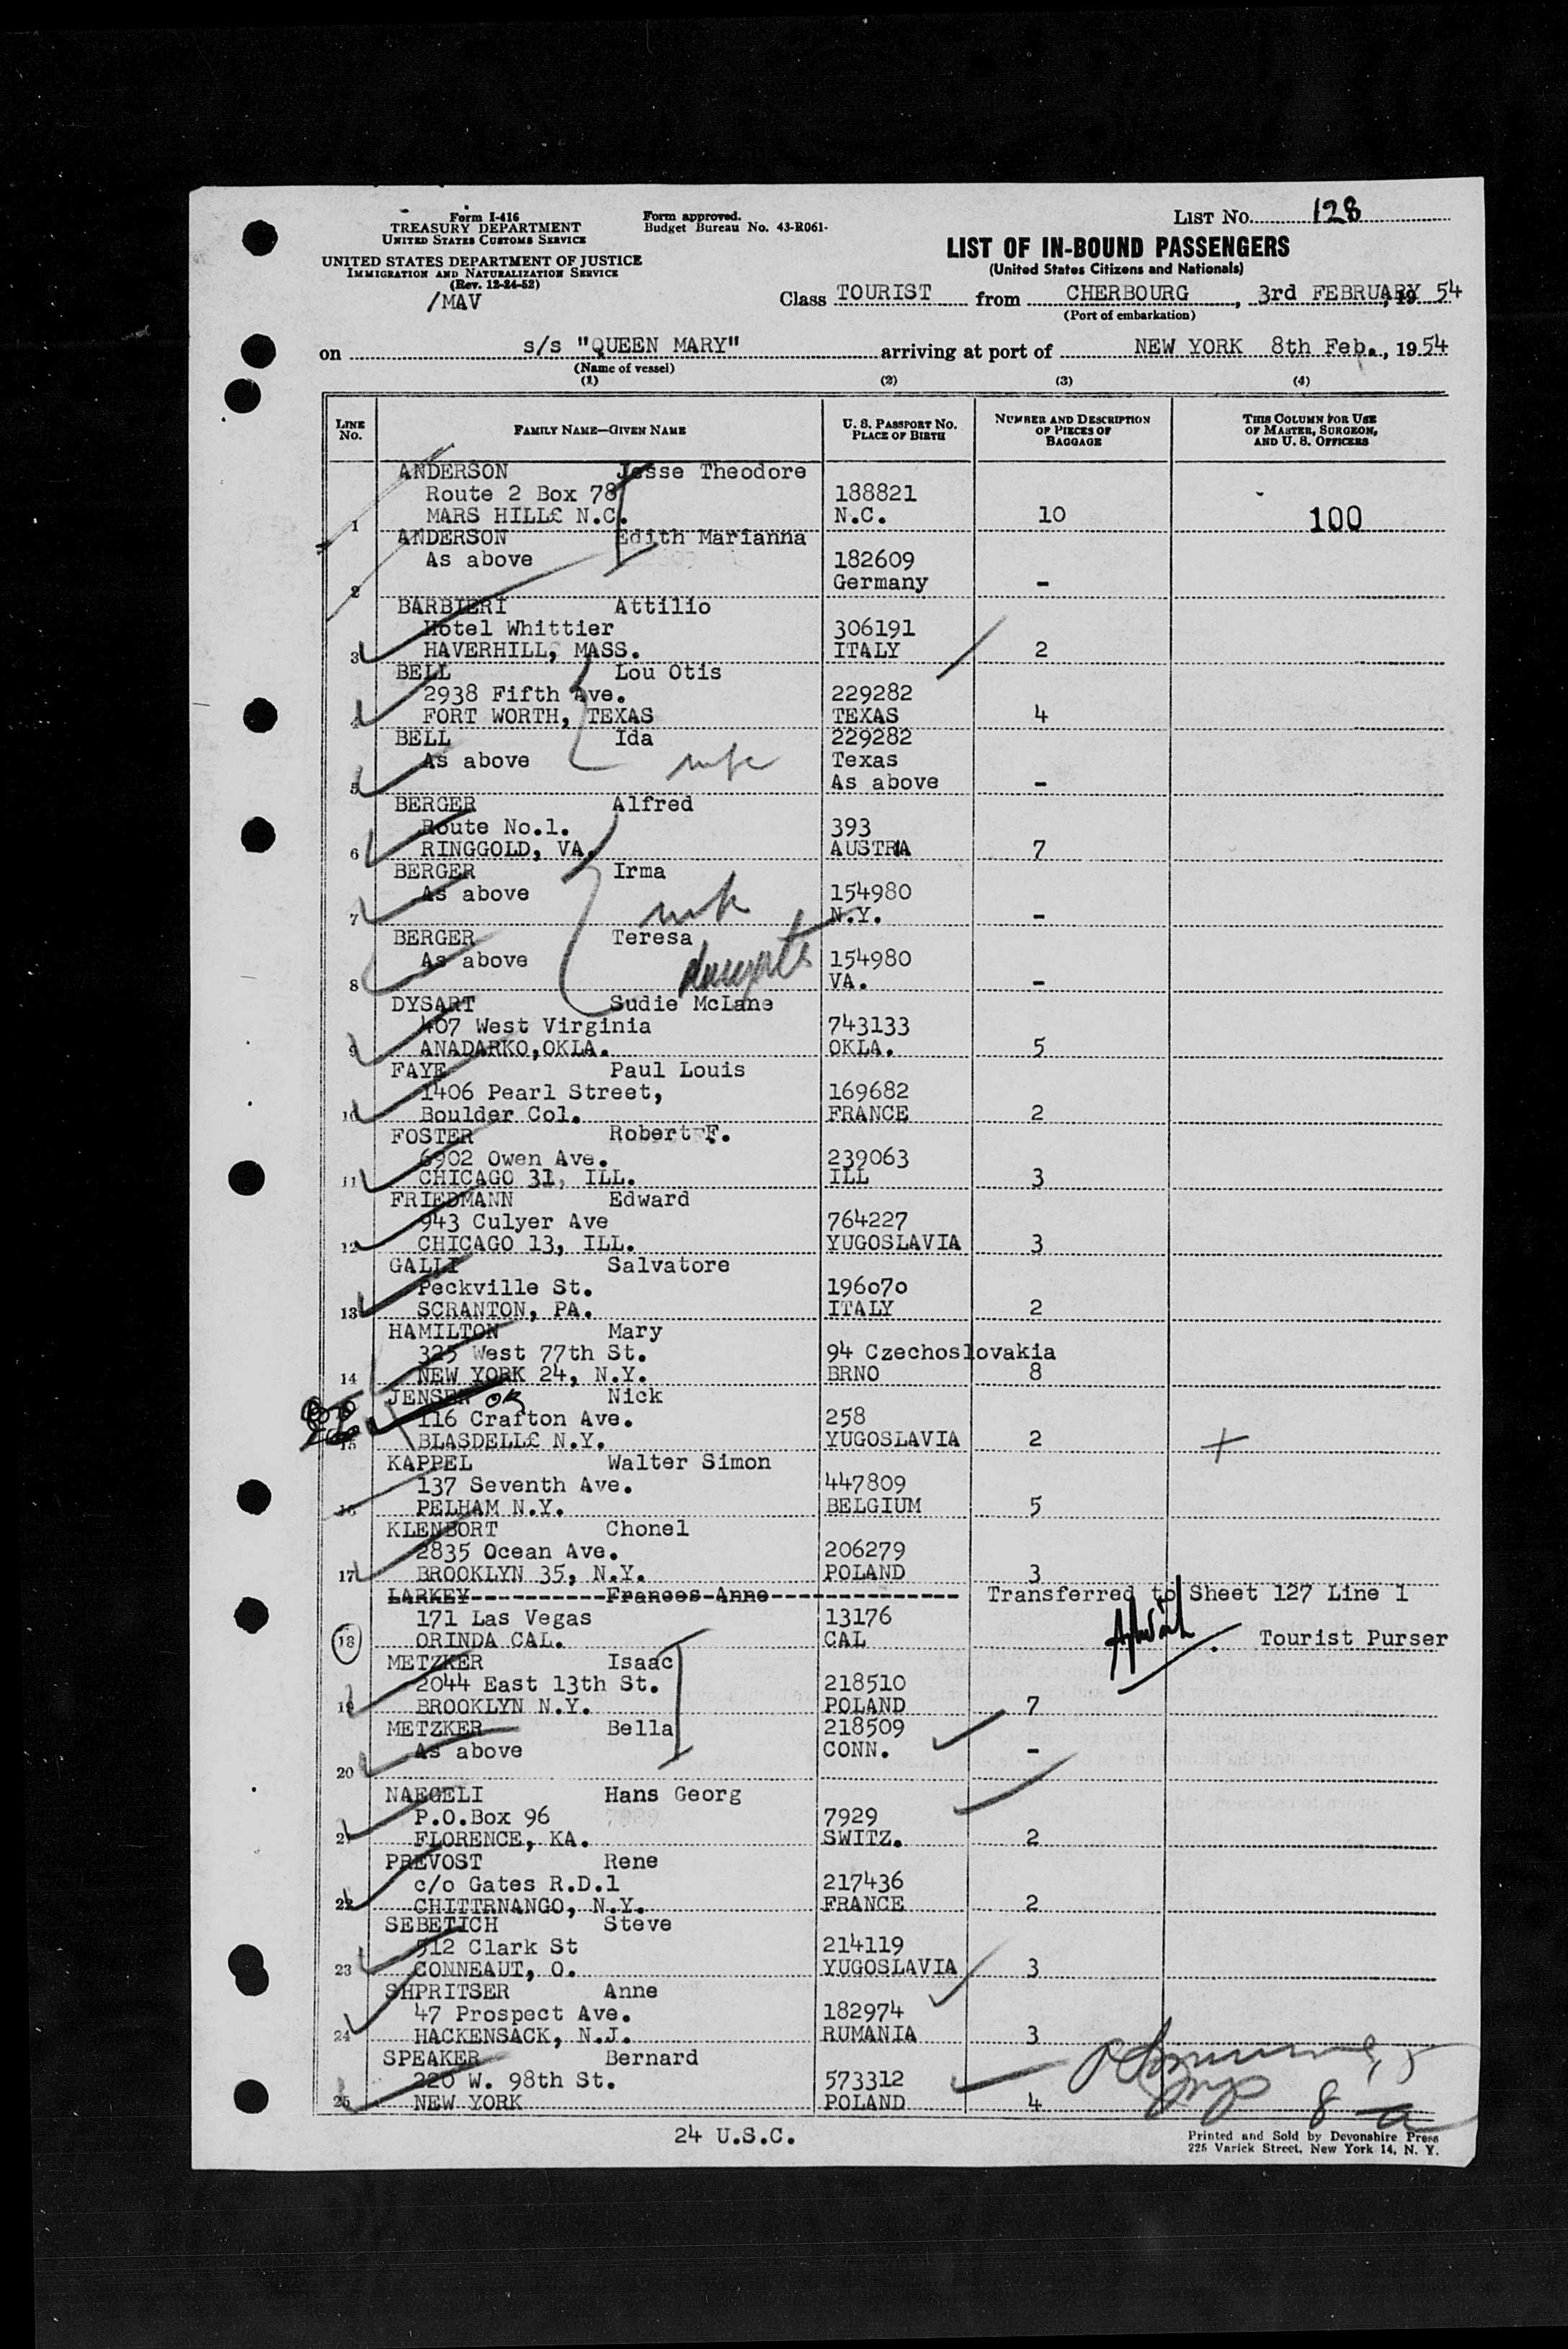 Form I-416
TREASURY DEPARTMENT
UNITED STATES CUSTOMS SERVICE
UNITED STATES DEPARTMENT OF JUSTICE
IMMIGRATION AND NATURALIZATION SERVICE
(Rev. 12-24-52)
/MAV
Form approved.
Budget Bureau No. 43-R061-
LIST NO. 128
LIST OF IN-BOUND PASSENGERS
(United States Citizens and Nationals)
Class TOURIST from CHERBOURG, 3rd FEBRUARY, 19 54
(Port of embarkation)
on s/s "QUEEN MARY" arriving at port of NEW YORK 8th Feb., 1954
(Name of vessel)
(1) (2) (3) (4)
LINE NO. FAMILY NAME—GIVEN NAME U. S. PASSPORT NO. PLACE OF BIRTH NUMBER AND DESCRIPTION OF PIECES OF BAGGAGE THIS COLUMN FOR USE OF MASTER, SURGEON, AND U. S. OFFICERS
ANDERSON Jesse Theodore
Route 2 Box 78 188821
1 MARS HILL£ N.C. N.C. 10 100
ANDERSON Edith Marianna
As above 182609
2 Germany -
BARBIERI Attilio
Hotel Whittier 306191
3 HAVERHILL, MASS. ITALY 2
BELL Lou Otis
2938 Fifth Ave. 229282
4 FORT WORTH, TEXAS TEXAS 4
BELL Ida 229282
As above Texas
5 As above -
BERGER Alfred
Route No.1. 393
6 RINGGOLD, VA. AUSTRIA 7
BERGER Irma
As above 154980
7 N.Y. -
BERGER Teresa
As above 154980
8 VA. -
DYSART Sudie McLane
407 West Virginia 743133
9 ANADARKO,OKLA. OKLA. 5
FAYE Paul Louis
1406 Pearl Street, 169682
10 Boulder Col. FRANCE 2
FOSTER Robert F.
6902 Owen Ave. 239063
11 CHICAGO 31, ILL. ILL 3
FRIEDMANN Edward
943 Culyer Ave 764227
12 CHICAGO 13, ILL. YUGOSLAVIA 3
GALLI Salvatore
Peckville St. 196070
13 SCRANTON, PA. ITALY 2
HAMILTON Mary
325 West 77th St. 94 Czechoslovakia
14 NEW YORK 24, N.Y. BRNO 8
JENSEN OK Nick
116 Crafton Ave. 258
15 BLASDELL£ N.Y. YUGOSLAVIA 2
KAPPEL Walter Simon
137 Seventh Ave. 447809
16 PELHAM N.Y. BELGIUM 5
KLENBORT Chonel
2835 Ocean Ave. 206279
17 BROOKLYN 35, N.Y. POLAND 3
LARKEY Frances Anne Transferred to Sheet 127 Line 1
171 Las Vegas 13176
18 ORINDA CAL. CAL Tourist Purser
METZKER Isaac
2044 East 13th St. 218510
19 BROOKLYN N.Y. POLAND 7
METZKER Bella 218509
As above CONN. -
20
NAEGELI Hans Georg
P.O.Box 96 7929
21 FLORENCE, KA. SWITZ. 2
PREVOST Rene
c/o Gates R.D.1 217436
22 CHITTRNANGO, N.Y. FRANCE 2
SEBETICH Steve
512 Clark St 214119
23 CONNEAUT, O. YUGOSLAVIA 3
SHPRITSER Anne
47 Prospect Ave. 182974
24 HACKENSACK, N.J. RUMANIA 3
SPEAKER Bernard
220 W. 98th St. 573312
25 NEW YORK POLAND 4
24 U.S.C.
Printed and Sold by Devonshire Press
225 Varick Street, New York 14, N. Y.